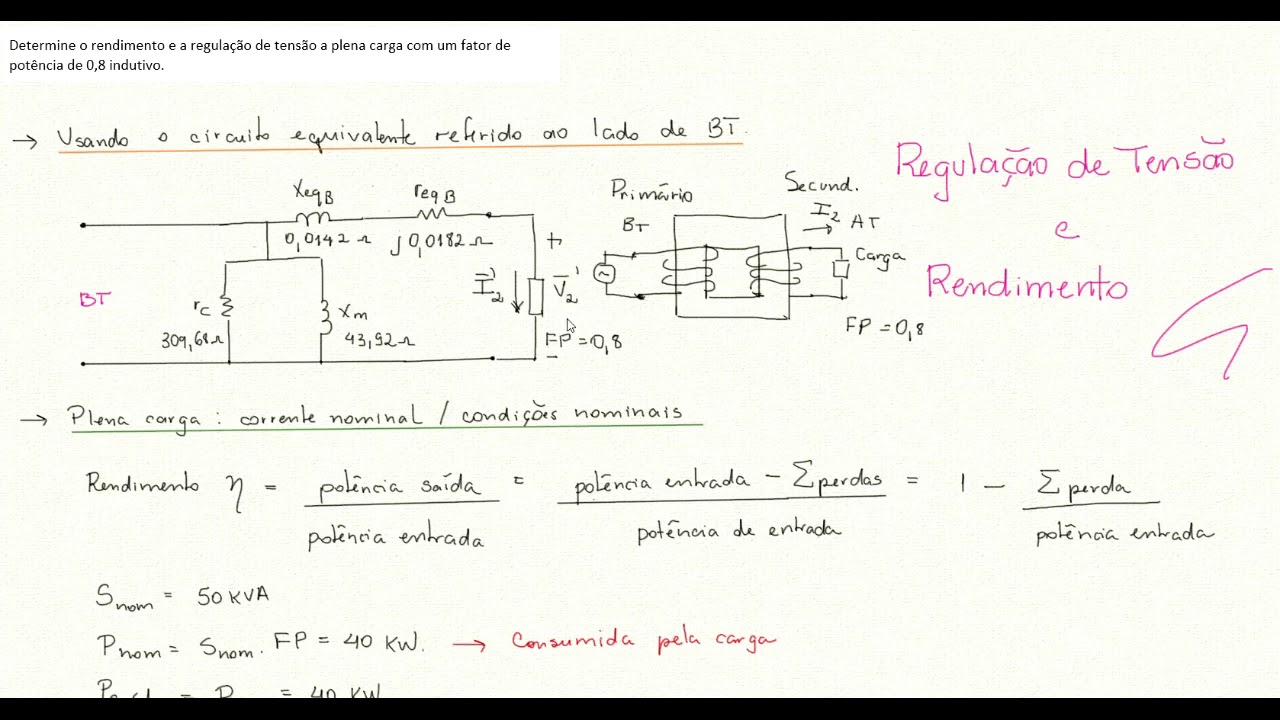 Determine o rendimento e a regulação de tensão a plena carga com um fator de
potência de 0,8 indutivo.
→ Usando o circuito equivalente referido ao lado de BT.
Regulação de Tensão
e
Rendimento
XeqB
reqB
0,0142 Ω
j0,0182 Ω
BT
rc
309,68 Ω
Xm
43,92 Ω
I2'
+
V2'
FP = 0,8
−
Primário
BT
Secund.
I2
AT
Carga
FP = 0,8
→ Plena carga : corrente nominal / condições nominais
Rendimento η = potência saída / potência entrada = potência entrada − Σperdas / potência de entrada = 1 − Σperda / potência entrada
Snom = 50 KVA
Pnom = Snom . FP = 40 KW. → Consumida pela carga
= 40 KW